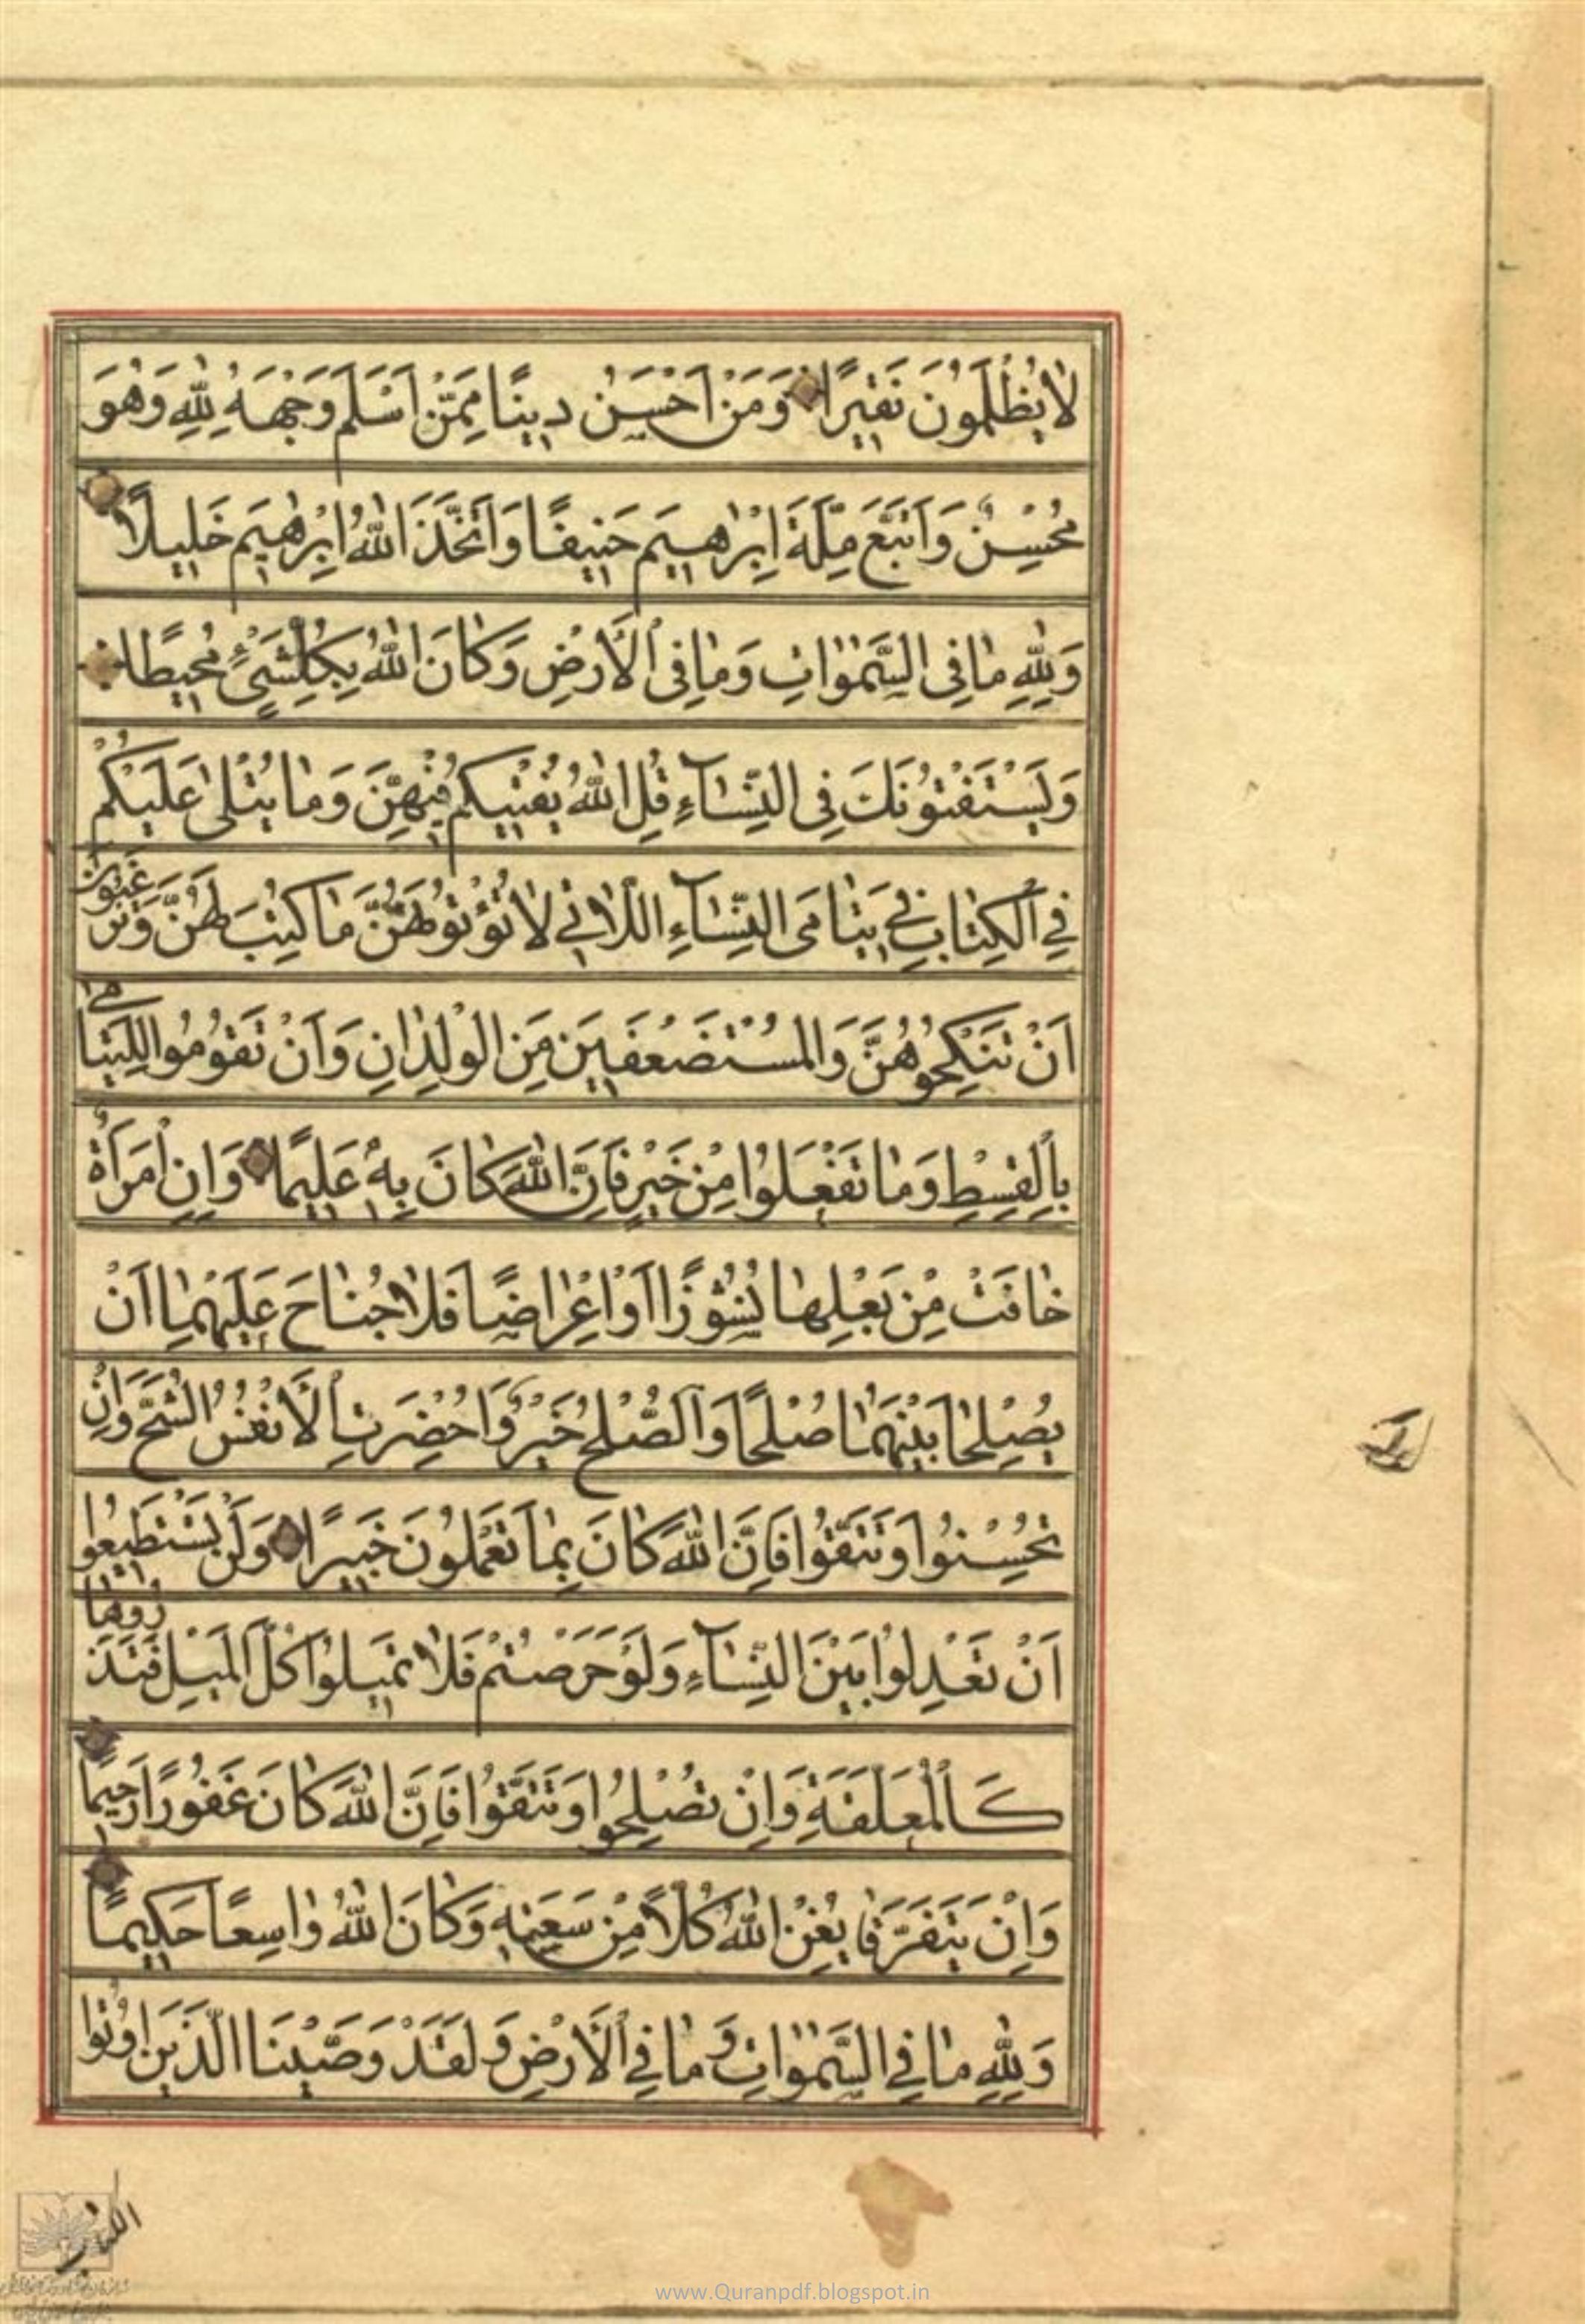 لا يُظْلَمُونَ نَقيرًا وَمَنْ اَحْسَنُ دينًا مِمَّنْ اَسْلَمَ وَجْهَهُ لِلّٰهِ وَهُوَ
مُحْسِنٌ وَاتَّبَعَ مِلَّةَ اِبْرٰهيمَ حَنيفًا وَاتَّخَذَ اللّٰهُ اِبْرٰهيمَ خَليلًا
وَلِلّٰهِ مٰا فِى السَّمٰوٰاتِ وَمٰا فِى الْاَرْضِ وَكٰانَ اللّٰهُ بِكُلِّ شَىْءٍ مُحيطًا
وَيَسْتَفْتُونَكَ فِى النِّسٰآءِ قُلِ اللّٰهُ يُفْتيكُمْ فيهِنَّ وَمٰا يُتْلٰى عَلَيْكُمْ
فِى الْكِتٰابِ فى يَتٰامَى النِّسٰآءِ اللّٰاتى لٰا تُؤْتُونَهُنَّ مٰا كُتِبَ لَهُنَّ وَتَرْغَبُونَ
اَنْ تَنْكِحُوهُنَّ وَالْمُسْتَضْعَفينَ مِنَ الْوِلْدٰانِ وَاَنْ تَقُومُوا لِلْيَتٰامٰى
بِالْقِسْطِ وَمٰا تَفْعَلُوا مِنْ خَيْرٍ فَاِنَّ اللّٰهَ كٰانَ بِهِ عَليمًا وَاِنِ امْرَاَةٌ
خٰافَتْ مِنْ بَعْلِهٰا نُشُوزًا اَوْ اِعْرٰاضًا فَلٰا جُنٰاحَ عَلَيْهِمٰا اَنْ
يُصْلِحٰا بَيْنَهُمٰا صُلْحًا وَالصُّلْحُ خَيْرٌ وَاُحْضِرَتِ الْاَنْفُسُ الشُّحَّ وَاِنْ
تُحْسِنُوا وَتَتَّقُوا فَاِنَّ اللّٰهَ كٰانَ بِمٰا تَعْمَلُونَ خَبيرًا وَلَنْ تَسْتَطيعُوا
اَنْ تَعْدِلُوا بَيْنَ النِّسٰآءِ وَلَوْ حَرَصْتُمْ فَلٰا تَميلُوا كُلَّ الْمَيْلِ فَتَذَرُوهٰا
كَالْمُعَلَّقَةِ وَاِنْ تُصْلِحُوا وَتَتَّقُوا فَاِنَّ اللّٰهَ كٰانَ غَفُورًا رَحيمًا
وَاِنْ يَتَفَرَّقٰا يُغْنِ اللّٰهُ كُلًّا مِنْ سَعَتِهِ وَكٰانَ اللّٰهُ وٰاسِعًا حَكيمًا
وَلِلّٰهِ مٰا فِى السَّمٰوٰاتِ وَمٰا فِى الْاَرْضِ وَلَقَدْ وَصَّيْنَا الَّذينَ اُوتُوا
الكتاب
www.Quranpdf.blogspot.in